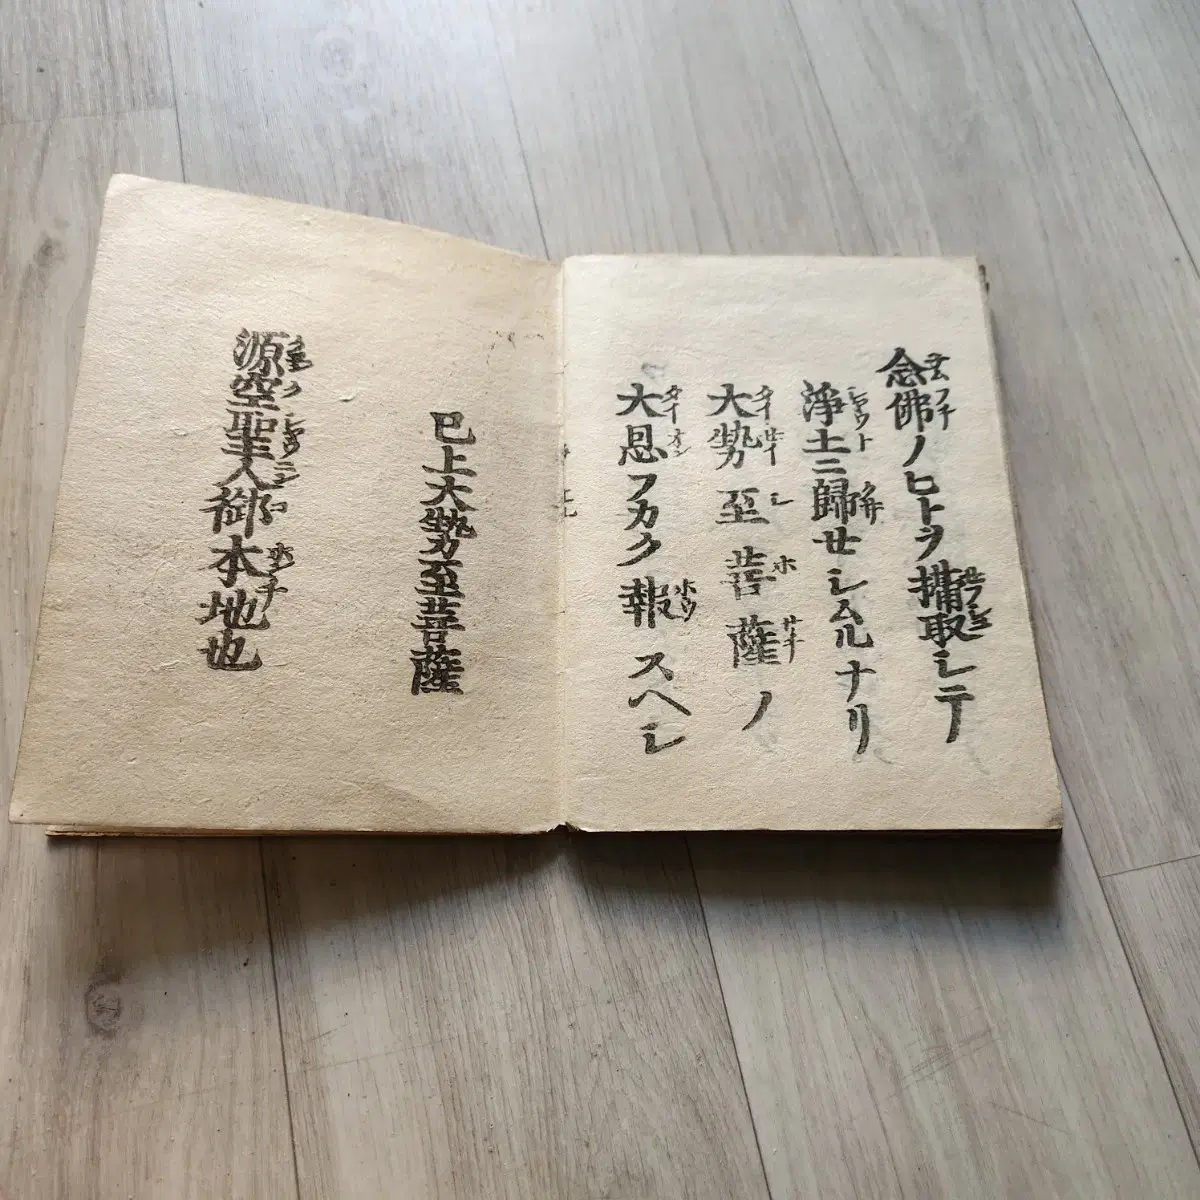 念佛ノヒトヲ攝取シテ
浄土ニ歸セシムルナリ
大勢至菩薩ノ
大恩フカク報スヘシ
已上大勢至菩薩
源空聖人御本地也